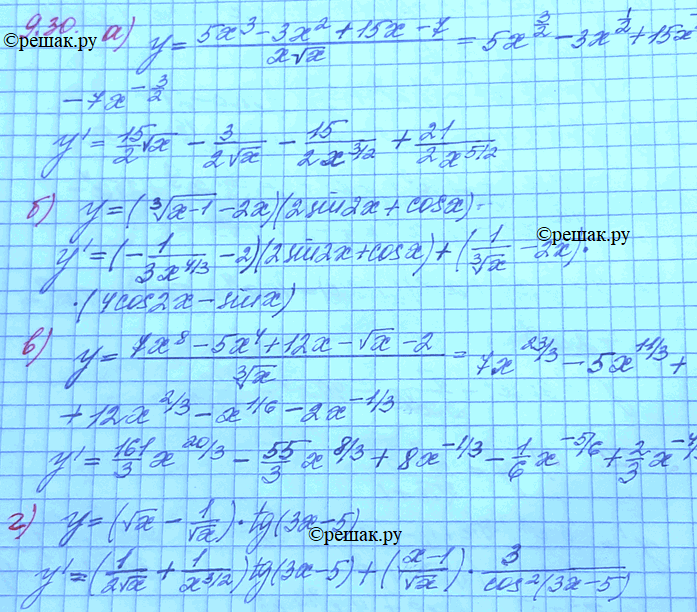 9.30. а) y = (5x³ − 3x² + 15x − 7)/(x√x) = 5x^(3/2) − 3x^(1/2) + 15x
©решак.ру
− 7x^(−3/2)
y' = 15/2 √x − 3/(2√x) − 15/(2x^(3/2)) + 21/(2x^(5/2))
б) y = (∛(x−1) − 2x)(2sin2x + cosx) −
y' = (− 1/(3x^(4/3)) − 2)(2sin2x + cosx) + (1/∛x − 2x) ·
©решак.ру
· (4cos2x − sinx)
в) y = (7x⁸ − 5x⁴ + 12x − √x − 2)/∛x = 7x^(23/3) − 5x^(11/3) +
+ 12x^(2/3) − x^(1/6) − 2x^(−1/3)
y' = 161/3 x^(20/3) − 55/3 x^(8/3) + 8x^(−1/3) − 1/6 x^(−5/6) + 2/3 x^(−4/
г) y = (√x − 1/√x) · tg(3x−5)
©решак.ру
y' = (1/(2√x) + 1/(x^(3/2))) tg(3x−5) + ((x−1)/√x) · 3/(cos²(3x−5))